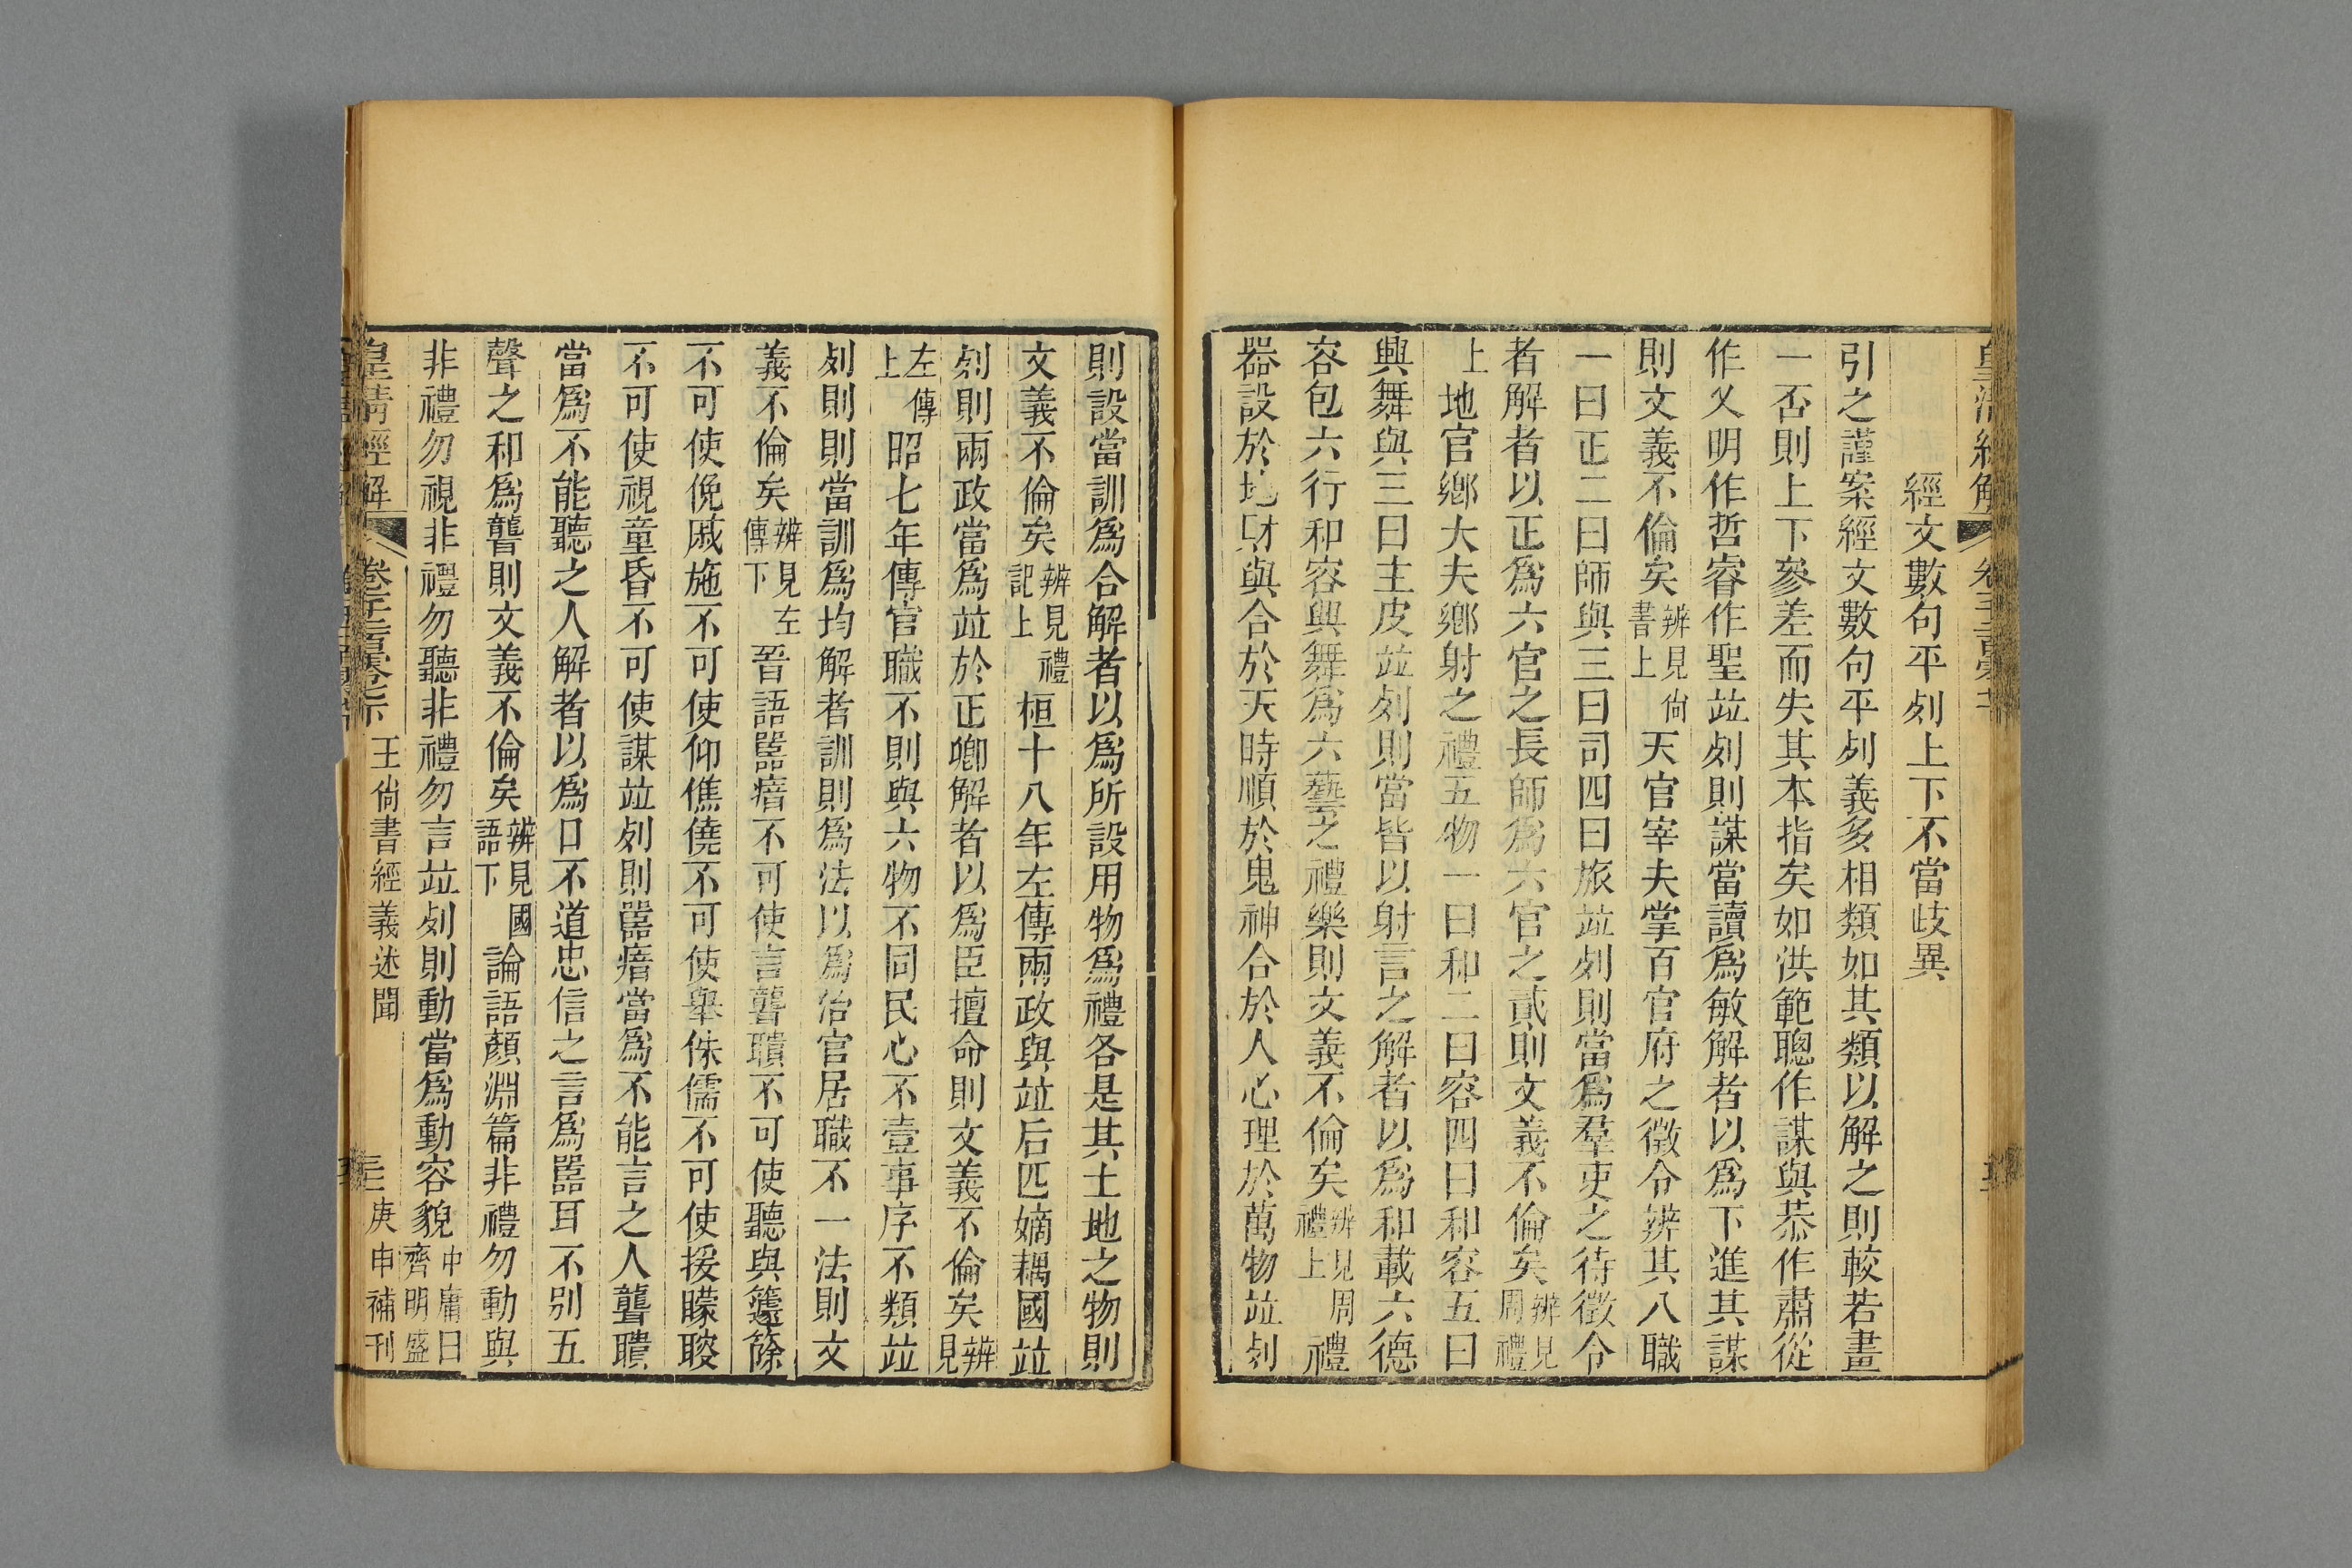 經文數句平列上下不當歧異
引之謹案經文數句平列義多相類如其類以解之則較若畫
一否則上下參差而失其本指矣如洪範聰作謀與恭作肅從
作乂明作哲睿作聖竝列則謀當讀爲敏解者以爲下進其謀
則文義不倫矣辨見尙書上天官宰夫掌百官府之徵令辨其八職
一曰正二曰師與三曰司四曰旅竝列則當爲羣吏之待徵令
者解者以正爲六官之長師爲六官之貳則文義不倫矣辨見周禮
上地官鄕大夫鄕射之禮五物一曰和二曰容四曰和容五曰
興舞與三曰主皮竝列則當皆以射言之解者以爲和載六德
容包六行和容興舞爲六藝之禮樂則文義不倫矣辨見周禮上禮
器設於地財與合於天時順於鬼神合於人心理於萬物竝列
則設當訓爲合解者以爲所設用物爲禮各是其土地之物則
文義不倫矣辨見禮記上桓十八年左傳兩政與竝后匹嫡耦國竝
列則兩政當爲竝於正卿解者以爲臣擅命則文義不倫矣辨見
左傳上昭七年傳官職不則與六物不同民心不壹事序不類竝
列則則當訓爲均解者訓則爲法以爲治官居職不一法則文
義不倫矣辨見左傳下晉語嚚瘖不可使言聾聵不可使聽與籧篨
不可使俛戚施不可使仰僬僥不可使舉侏儒不可使援矇瞍
不可使視童昏不可使謀竝列則嚚瘖當爲不能言之人聾聵
當爲不能聽之人解者以爲口不道忠信之言爲嚚耳不別五
聲之和爲聾則文義不倫矣辨見國語下論語顏淵篇非禮勿動與
非禮勿視非禮勿聽非禮勿言竝列則動當爲動容貌中庸曰齊明盛
皇淸經解 王尙書經義述聞 庚申補刊